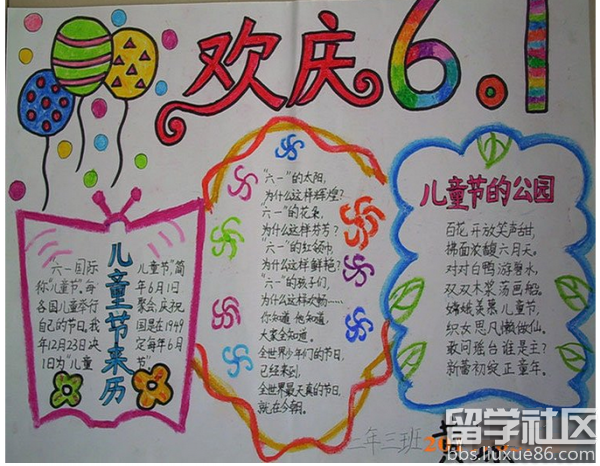 欢庆6.1
儿童节来历
"六一国际
儿童节"简
称"儿童节"。每
年6月1日
各国儿童举行
聚会,庆祝
自己的节日。我
国是在1949
年12月23日决
定每年6月
1日为"儿童
节"
"六一"的太阳,
为什么这样辉煌?
六一"的花朵,
为什么这样芬芳?
"六一"的红领巾
为什么这样鲜艳?
"六一"的孩子们,
为什么这样欢畅……
你知道 他知道,
大家全知道。
全世界少年们的节日,
已经来到,
全世界最天真的节日,
就在今朝。
儿童节的公园
百花开放笑声甜,
拂面浓馥六月天。
对对白鸭游碧水,
双双木桨荡画船。
嫦娥羡慕儿童节,
织女思凡懒做仙。
敢问瑶台谁是主?
新蕾初绽正童年。
三年三班
留学社区
bbs.liuxue86.com